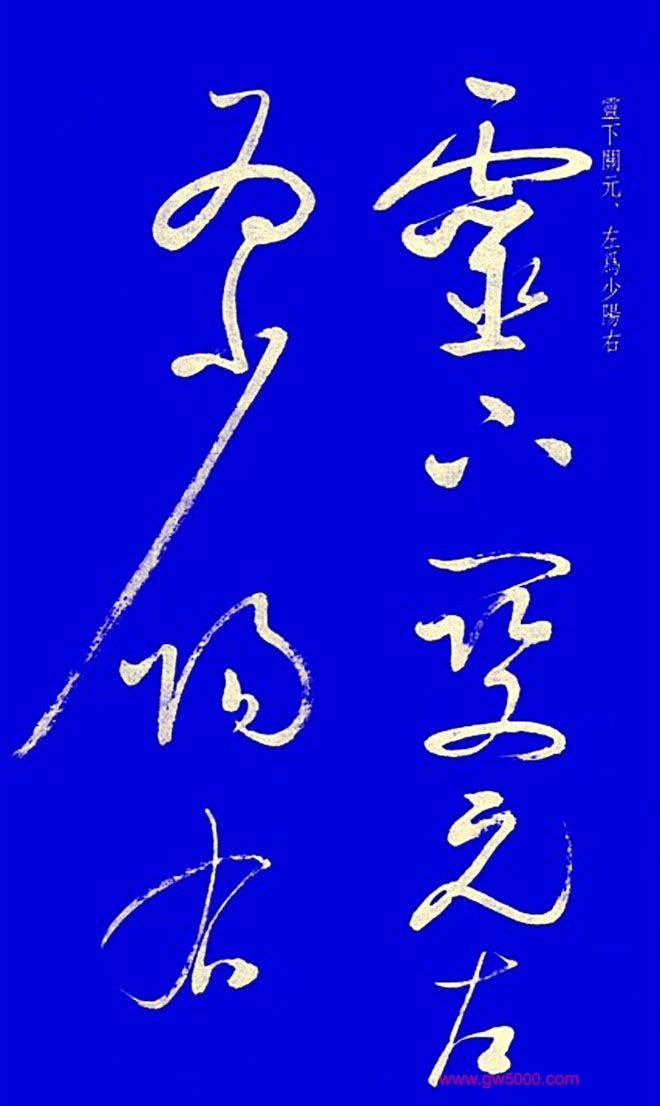 靈下關元、左爲少陽右
靈下關元左
爲少陽右
www.gw5000.com